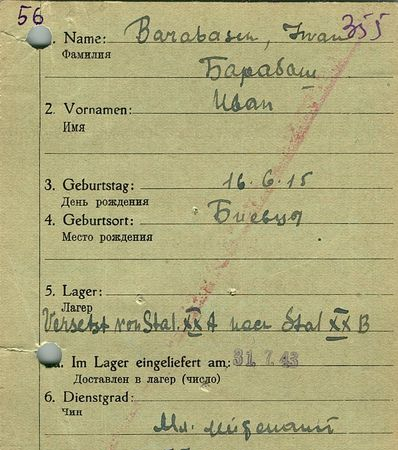 56
355
1. Name: Barabasch, Iwan
Фамилия
Барабаш
2. Vornamen: Иван
Имя
3. Geburtstag: 16.6.15
День рождения
4. Geburtsort:
Место рождения
5. Lager:
Лагер
Versetzt von Stal. XX A nach Stal XX B
Im Lager eingeliefert am: 31.7.43
Доставлен в лагер (число)
6. Dienstgrad:
Чин
Мл. лейтенант